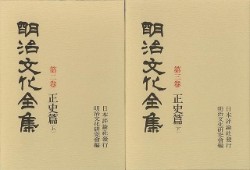 明治文化全集
第二卷 正史篇 上
明治文化研究會編
日本評論社發行
明治文化全集
第三卷 正史篇 下
明治文化研究會編
日本評論社發行